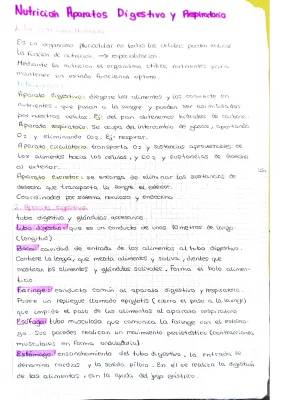 Nutrición Aparatos Digestivo y Respiratorio
En un organismo pluricelular no todas las células pueden realizar
la función de nutrición → especialización.
Mediante la nutrición el organismo utiliza nutrientes para
mantener un estado funcional óptimo.
Aparato digestivo: digiere los alimentos y los convierte en
nutrientes, que pasan a la sangre y pueden ser asimilados
por nuestras células. Ej: del pan obtenemos hidratos de carbono.
Aparato respiratorio: Se ocupa del intercambio de gases, aportando
O2 y eliminando CO2. Ej: respirar.
Aparato circulatorio: transporta O2 y sustancias aprovechables de
los alimentos hacia las células, y CO2 y sustancias de desecho
al exterior.
Aparato Excretor: se encarga de eliminar las sustancias de
desecho que transporta la sangre al exterior.
Coordinados por sistema nervioso y endocrino.
2. Aparato digestivo
tubo digestivo y glándulas accesorias.
Tubo digestivo: que es un conducto de unos 10 metros de largo
(longitud).
Boca: cavidad de entrada de los alimentos al tubo digestivo.
Contiene la lengua, que mezcla alimentos y saliva, dientes que
mastican los alimentos y glándulas salivales. Forma el bolo alimen-
ticio.
Faringe: conducto común al aparato digestivo y respiratorio.
Posee un repliegue llamado epiglotis (cierra el paso a la laringe)
que impide el paso de los alimentos al aparato respiratorio.
Esófago: tubo musculoso que comunica la faringe con el estóma-
go. Sus paredes realizan un movimiento peristáltico (contracciones
musculares en forma ondulatoria)
Estómago: ensanchamiento del tubo digestivo, la entrada se
denomina cardias y la salida píloro. En él se realiza la digestión
de los alimentos, con la ayuda del jugo gástrico.